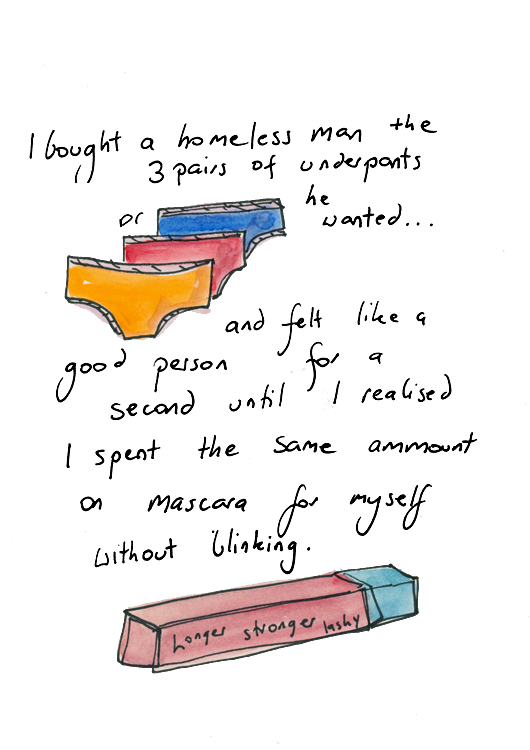 I bought a homeless man the
3 pairs of underpants
he
or wanted...
and felt like a
good person for a
second until I realised
I spent the same ammount
on mascara for myself
without blinking.
Longer stronger lashy